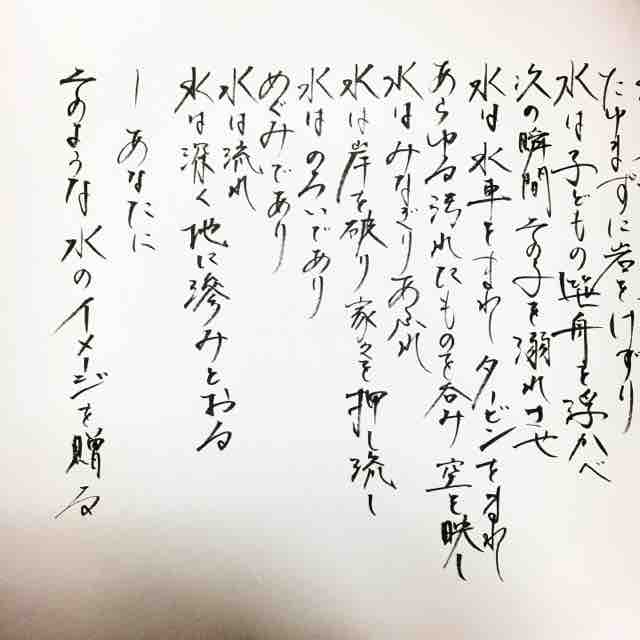 たゆまずに岩をけずり
水は子どもの笹舟を浮かべ
次の瞬間その子を溺れさせ
水は水車をまわし タービンをまわし
あらゆる汚れたものを呑み 空を映し
水はみなぎりあふれ
水は岸を破り家々を押し流し
水はのろいであり
めぐみであり
水は流れ
水は深く地に滲みとおる
― あなたに
そのような水のイメージを贈る